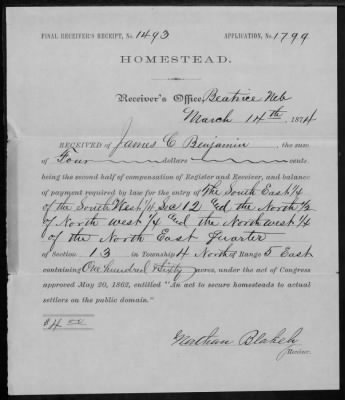 FINAL RECEIVER'S RECEIPT, No. 1493 APPLICATION, No. 1799
HOMESTEAD.
Receiver's Office, Beatrice Neb
March 14th, 1874
RECEIVED OF James C Benjamin the sum
of Four dollars cents,
being the second half of compensation of Register and Receiver, and balance
of payment required by law for the entry of The South East 1/4
of the South West 1/4 Sec 12 And the North 1/2
of North west 1/4 And the North west 1/4
of the North East Quarter
of Section 13 in Township 4 North of Range 5 East
containing One hundred Sixty acres, under the act of Congress
approved May 20, 1862, entitled "An act to secure homesteads to actual
settlers on the public domain."
$4 00
Nathan Blakely
Receiver.